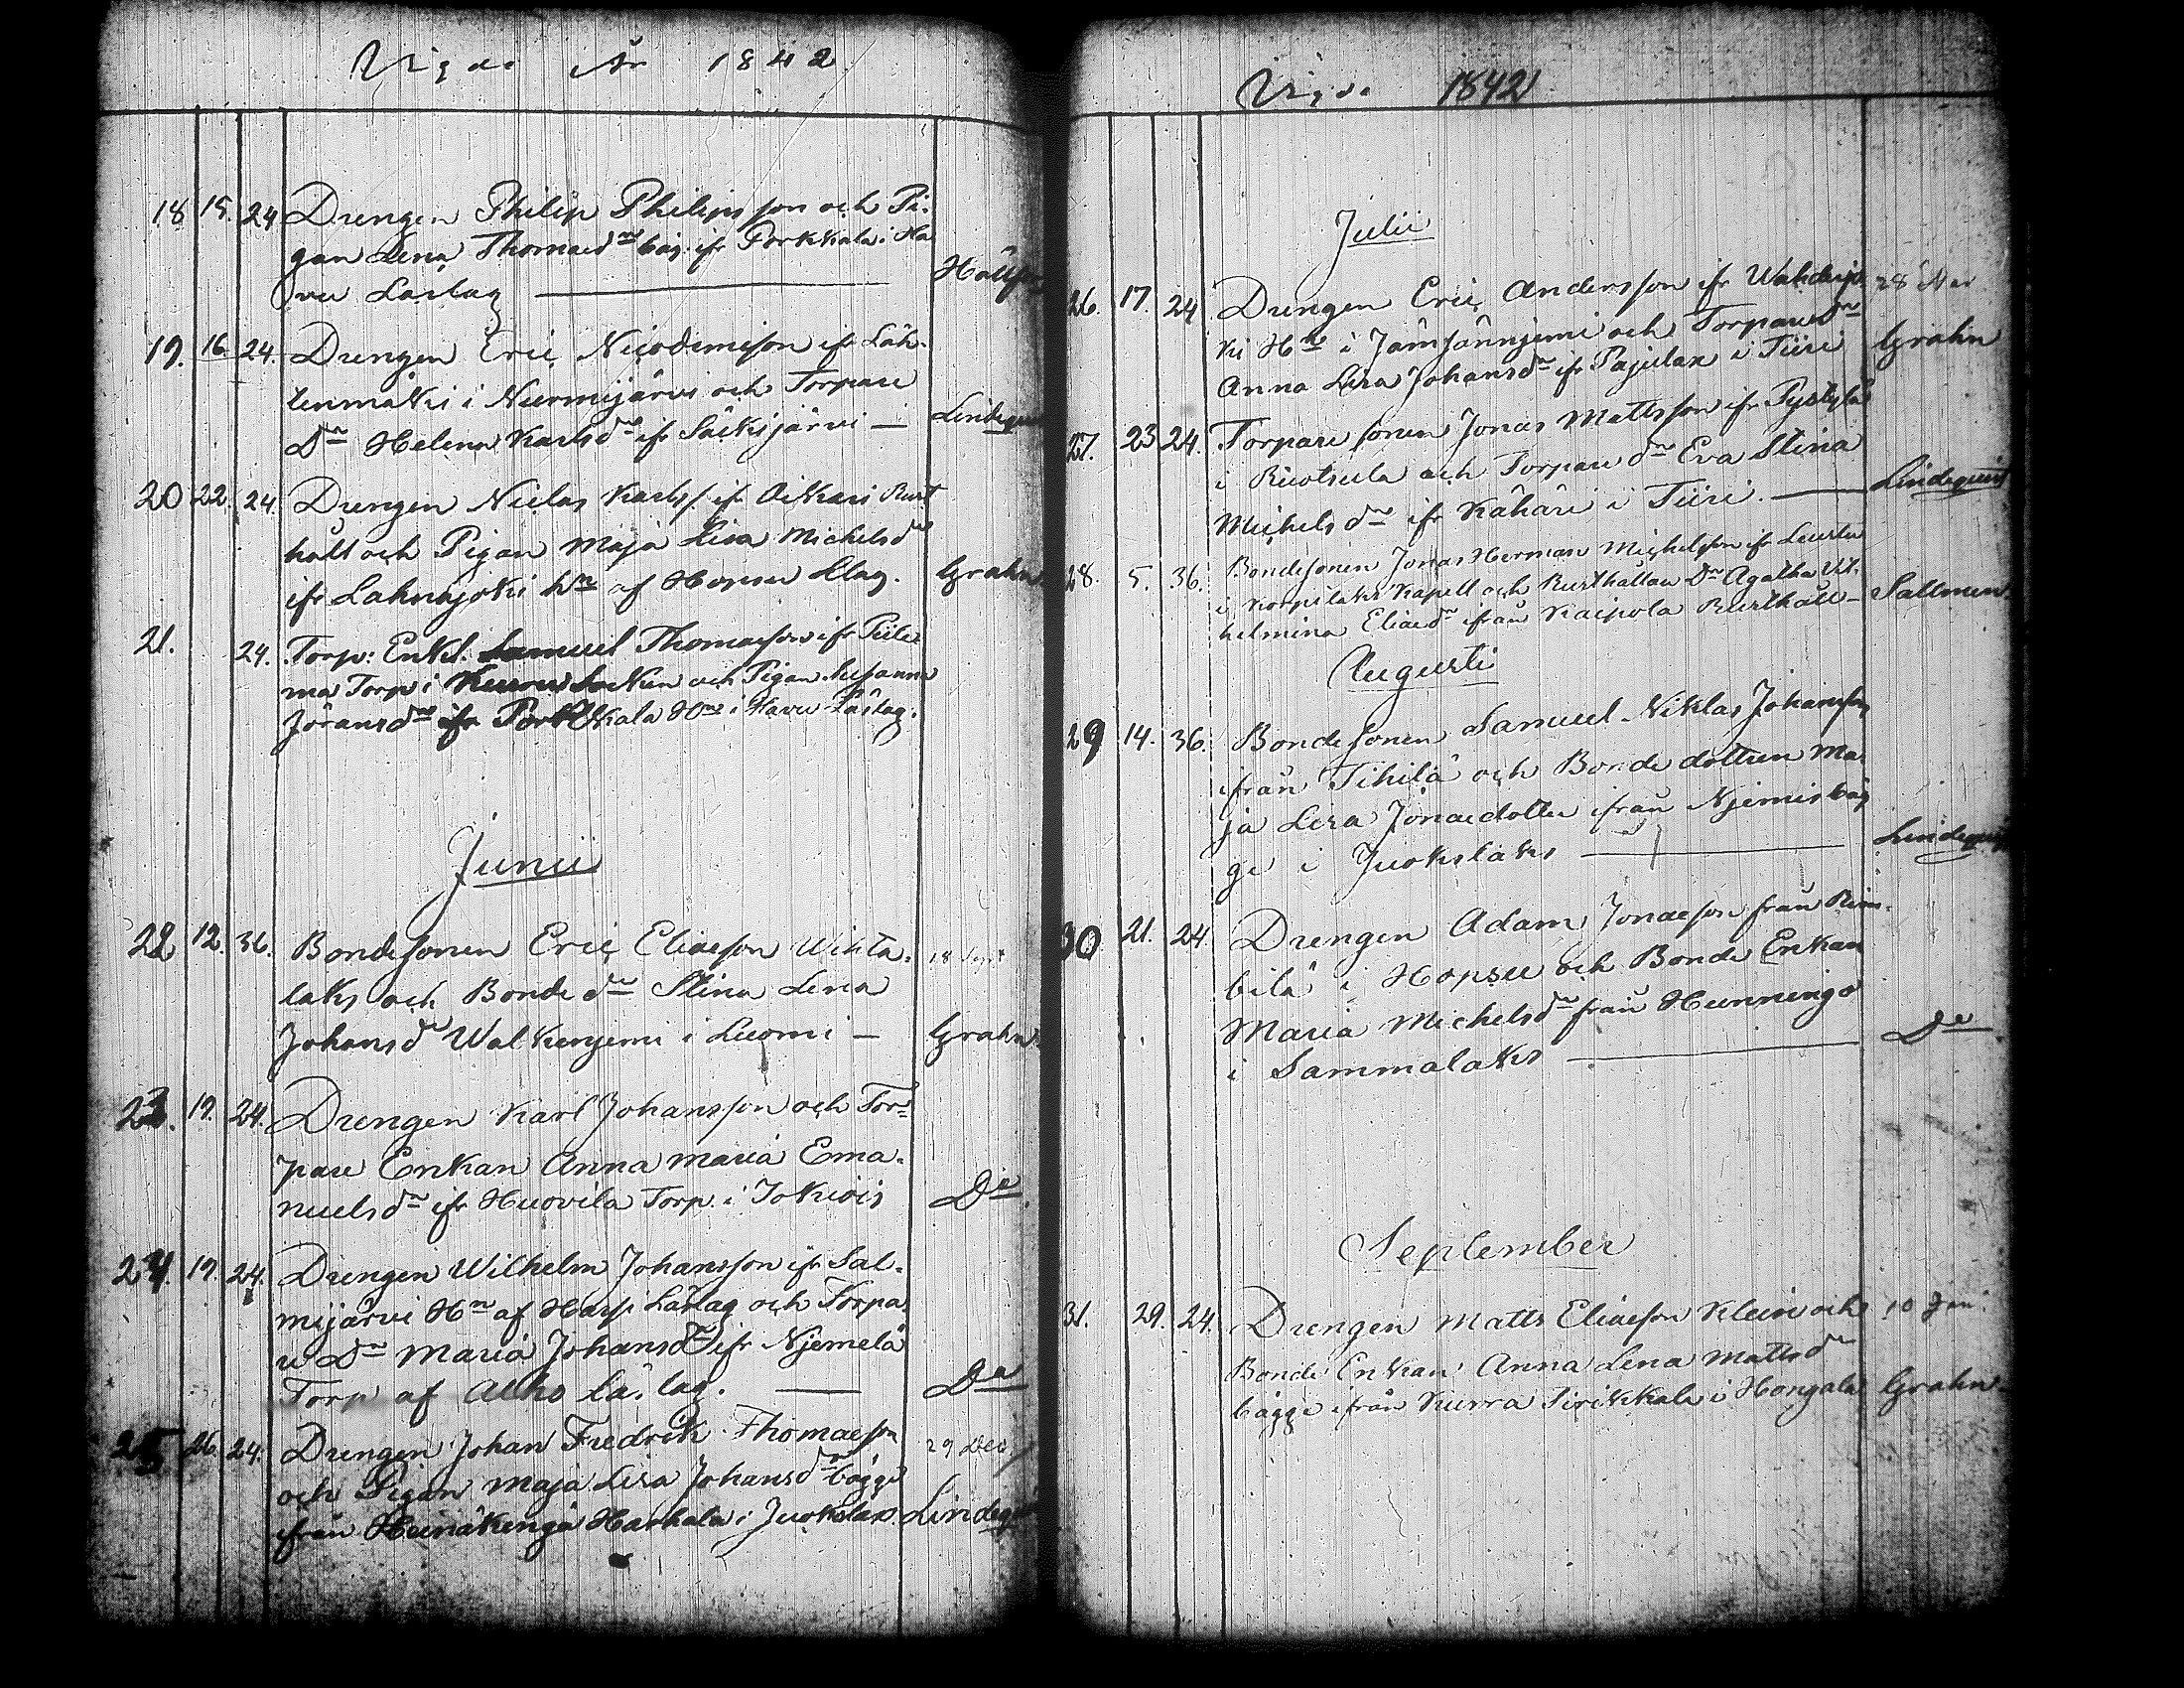 Vigde År 1842
18 15. 24 Drengen Philip Philipsson och Pi-
gan Lena Thomaedr bäg. ifr Porkkala i Ha
vu Låstag
19. 16. 24. Drengen Eric Nicodemisson ifr Läh-
tenmäki i Nurmijärvi och Torpare
Dr Helena Karlsdr ifr Säiksjärvi — Lindequist
20 22. 24. Drengen Niclas Karlss. ifr Oikari Rust
håll och Pigan Maja Lisa Michelsdr
ifr Lahnajoki Hn af Hopsu Llag. Grahn
21. 24. Torp: Enkl. Samuel Thomaeson ifr
ma Torp i Socken och Pigan Susanna
Jöransdr ifr Porkkala Hn i Havu Låstag.
Junii
22 12. 36. Bondesonen Eric Eliaeson Wihta- 18 Sept
laks och Bonde dr Stina Lena
Johansdr Walkenjemi i Luomi — Grahn
23. 19. 24. Drengen Karl Johansson och Tor-
pare Enkan Anna Maria Ema-
nuelsdr ifr Huovila Torp. i Jokiois Do
24. 19. 24. Drengen Wilhelm Johansson ifr Sal-
mijärvi Hn af Harji Låstag och Torpa-
re Dr Maria Johansdr ifr Njemelä
Torp af Alho Lå.lag. — Do
25 26. 24. Drengen Johan Fredrik Thomaeson 29 Dec
och Pigan Maja Lisa Johansdr bägge
från Harhala i Juokslax. Lindequist
Vigde 1842
Julii
26. 17. 24 Drengen Eric Andersson ifr 28 Mar
ki Hn i Jämsännjemi och Torparedr Grahn
Anna Lisa Johansdr ifr Pajulax i Tiiri
27. 23 24. Torpare sonen Jonas Mattsson ifr Pystylä
i Ruotsula och Torpare dr Eva Stina Lindequist
Michelsdr ifr Kähäri i Tiiri. —
28. 5. 36. Bondesonen Jonas Herman Michelsson ifr
i Korpilaks Kapell och Rusthållare Dr Agatha Vil- Sallmen
helmina Eliaedr ifrån Kaipola Rusthåll —
Augusti
29 14. 36. Bondesonen Samuel Niklas Johansson
ifrån Tihilä och Bonde dottren Ma-
ja Lisa Jonaedotter ifrån Njemis bäg
ge i Juokslaks — Lindequist
30 21. 24. Drengen Adam Jonaeson från Rim-
bilä i Hopsu och Bonde Enkan
Maria Michelsdr från Hunninge
i Sammalaks — Do
31. 29. 24. Drengen Matts Eliaeson Klein och 10 Jan.
Bonde Enkan Anna Lena Mattsdr
bägge ifrån Kurra Sirikkala i Hongala Grahn